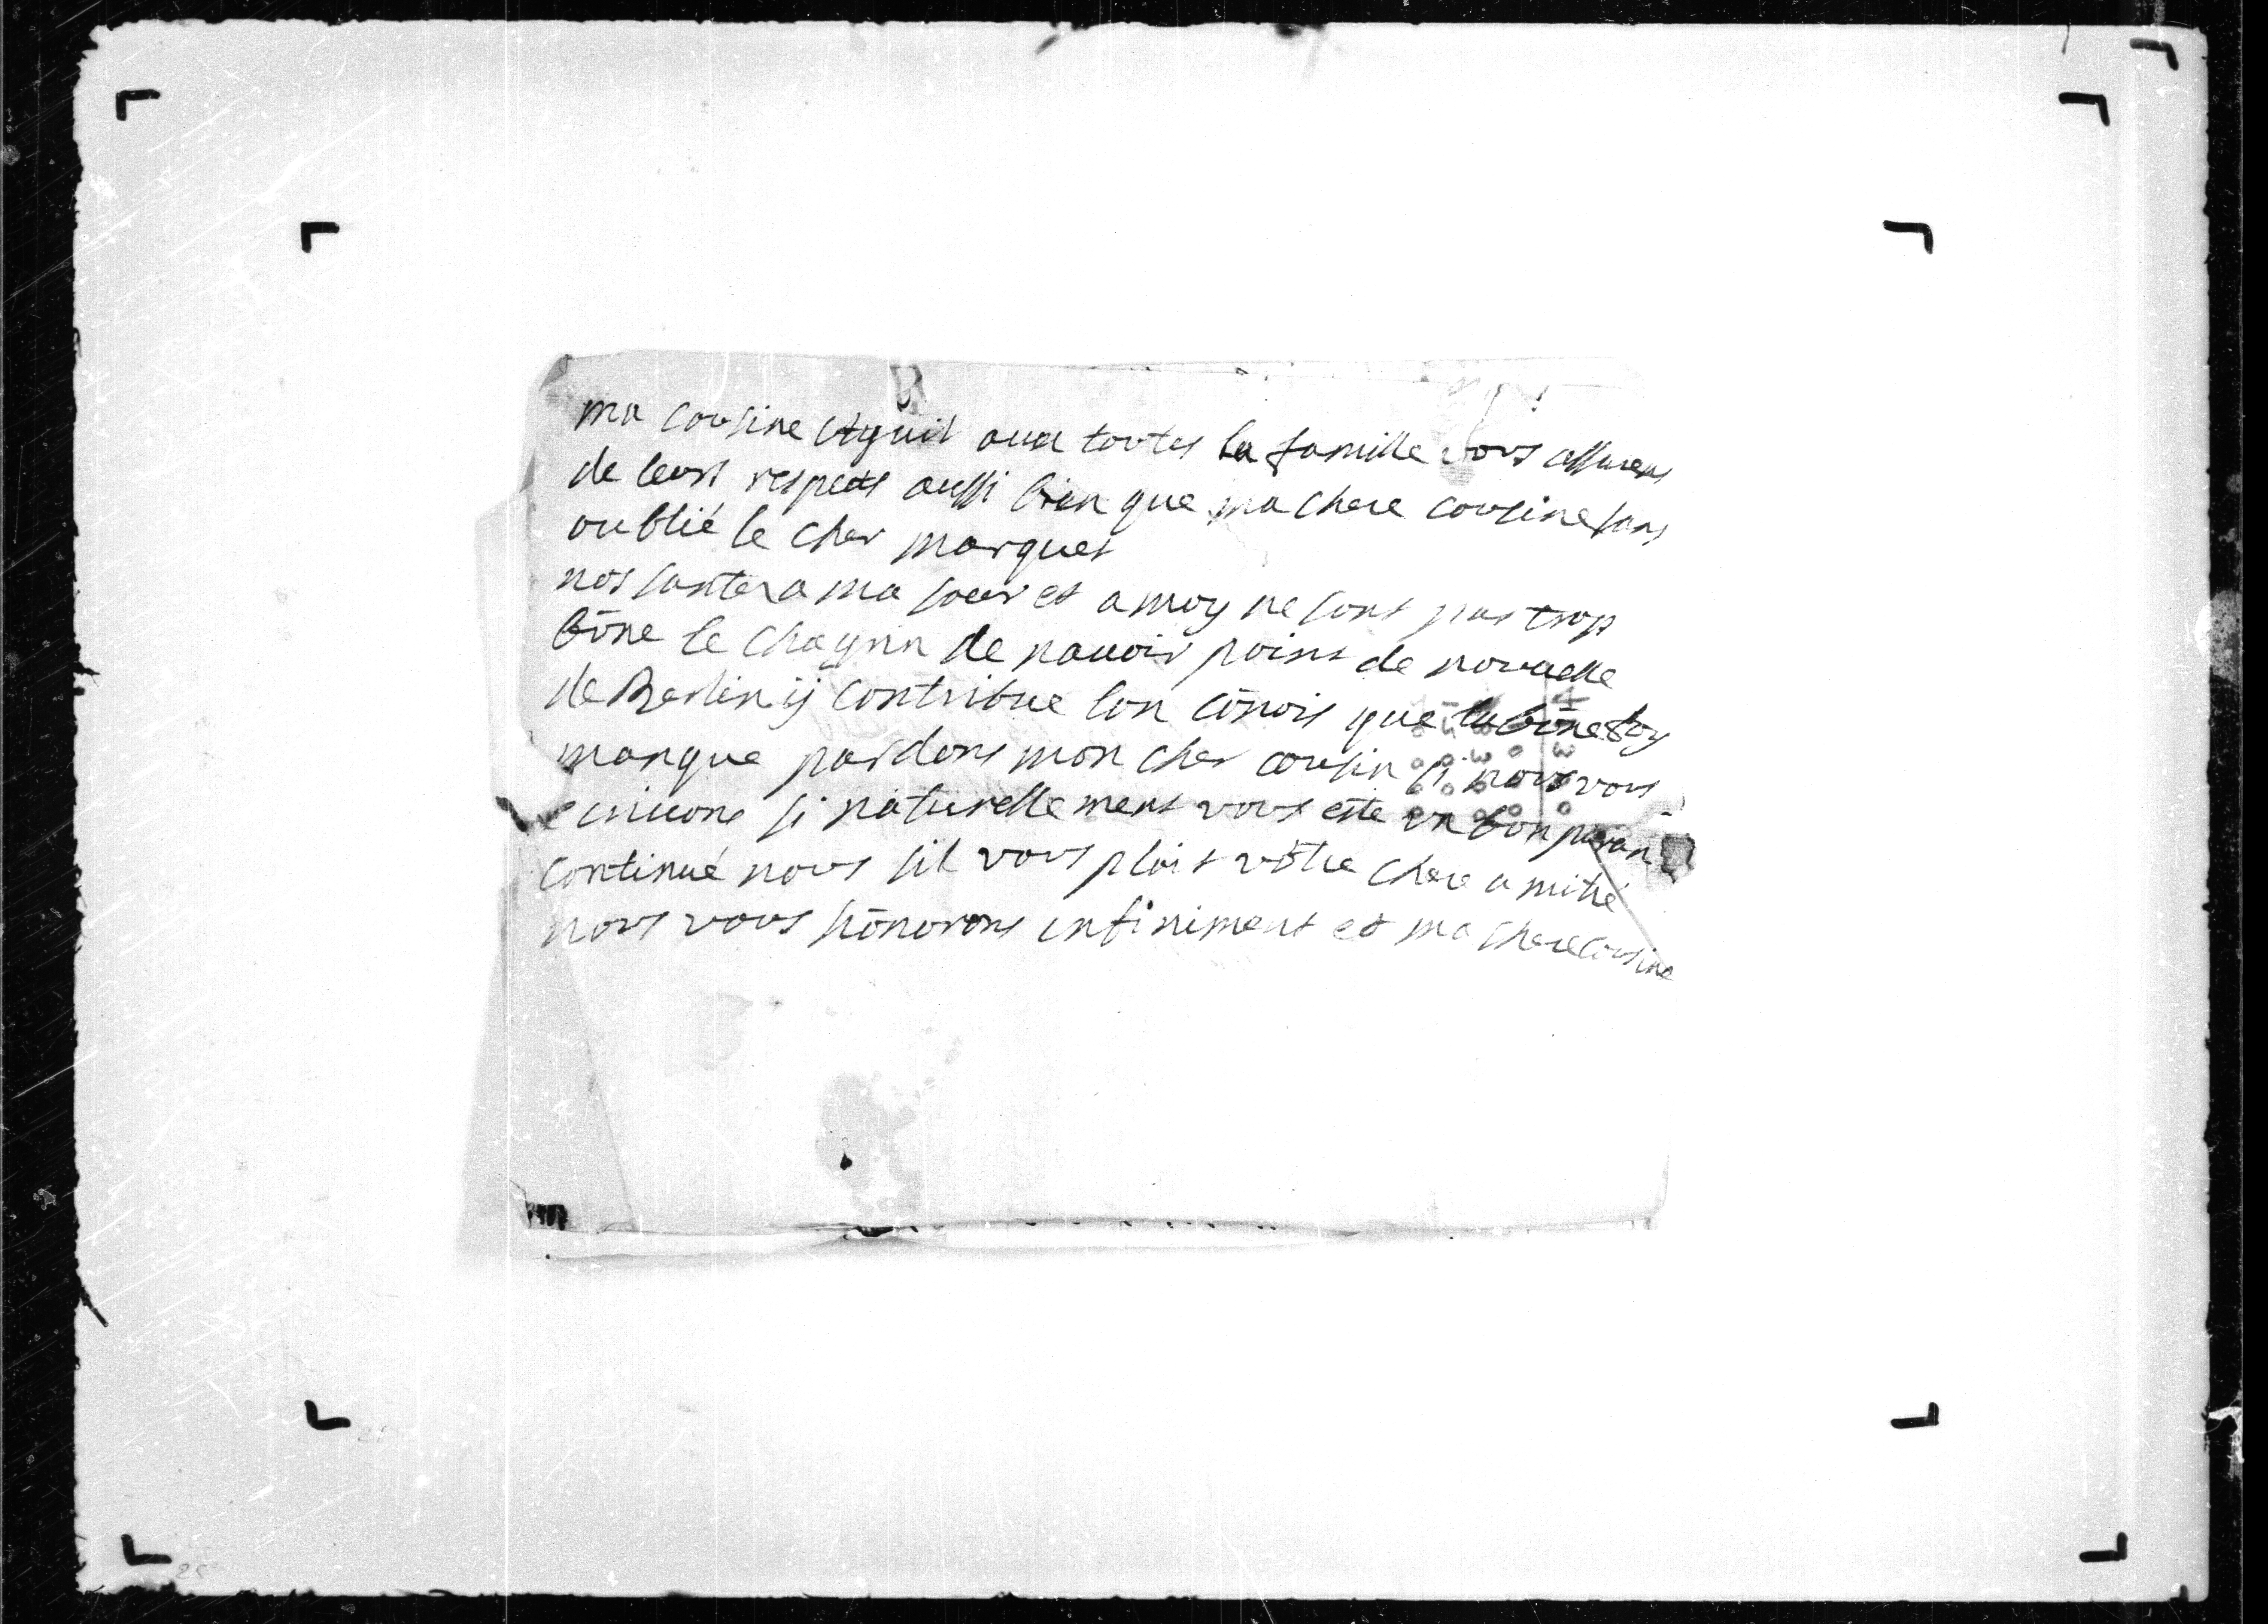 ma cousine auex toutes la famille vous assurens
de leurs respects aussi bien que ma chere cousine sans
oublié le cher marquet
nos santez a ma soeur et a moy ne sont pas trop
bōne le chagrin de nauoir point de nouuelle
de Berlin ij contribue lon cōnois que la bōne foy
manque pardons mon cher cousin si nous vous
ecriuons si naturellement vous este un bon paran
continué nous sil vous plait vôtre chere amitié
nous vous hōnorons infiniment et ma chere cousine